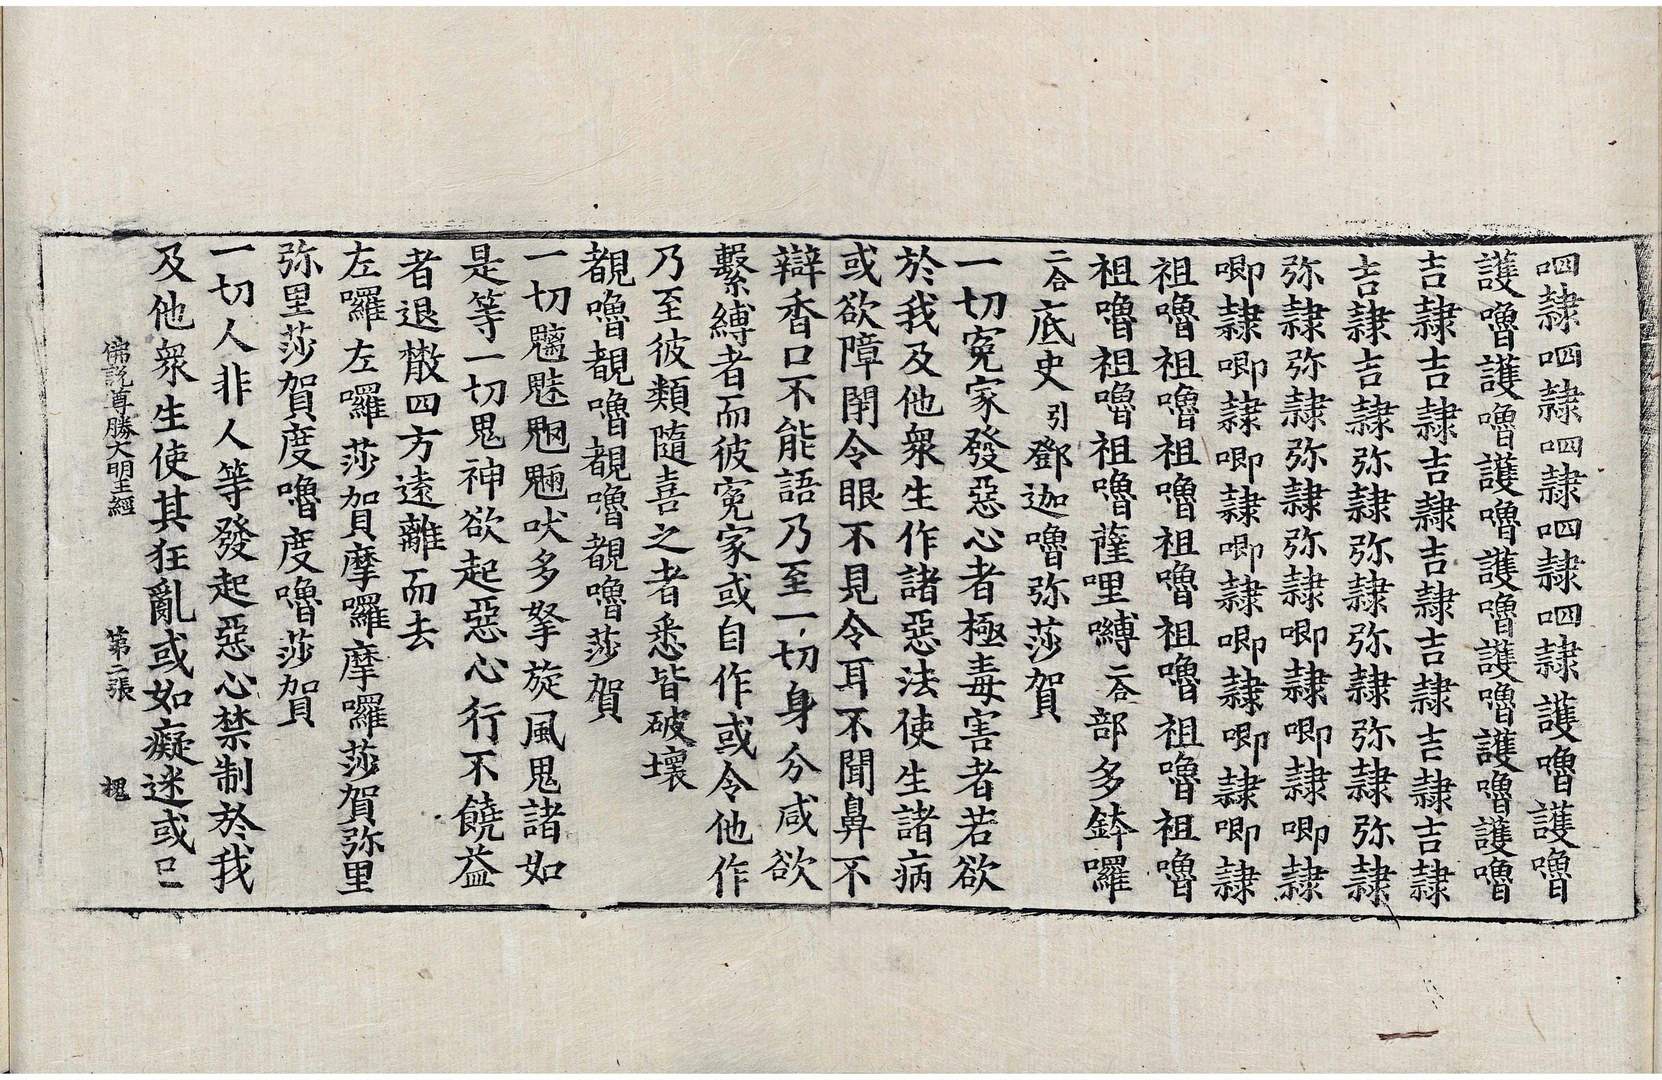 呬隷呬隷呬隷呬隷呬隷護嚕護嚕
護嚕護嚕護嚕護嚕護嚕護嚕護嚕
吉隷吉隷吉隷吉隷吉隷吉隷吉隷
吉隷吉隷弥隷弥隷弥隷弥隷弥隷
弥隷弥隷弥隷弥隷唧隷唧隷唧隷
唧隷唧隷唧隷唧隷唧隷唧隷唧隷
祖嚕祖嚕祖嚕祖嚕祖嚕祖嚕祖嚕
祖嚕祖嚕祖嚕薩哩嚩二合部多鉢囉
二合底史引鄧迦嚕弥莎賀
一切寃家發惡心者極毒害者若欲
於我及他衆生作諸惡法使生諸病
或欲障閉令眼不見令耳不聞鼻不
辯香口不能語乃至一切身分咸欲
繫縛者而彼寃家或自作或令他作
乃至彼類隨喜之者悉皆破壞
覩嚕覩嚕覩嚕覩嚕莎賀
一切魑魅魍魎吠多拏旋風鬼諸如
是等一切鬼神欲起惡心行不饒益
者退散四方遠離而去
左囉左囉莎賀摩囉摩囉莎賀弥里
弥里莎賀度嚕度嚕莎賀
一切人非人等發起惡心禁制於我
及他衆生使其狂亂或如癡迷或口
佛說尊勝大明王經 第二張 槐